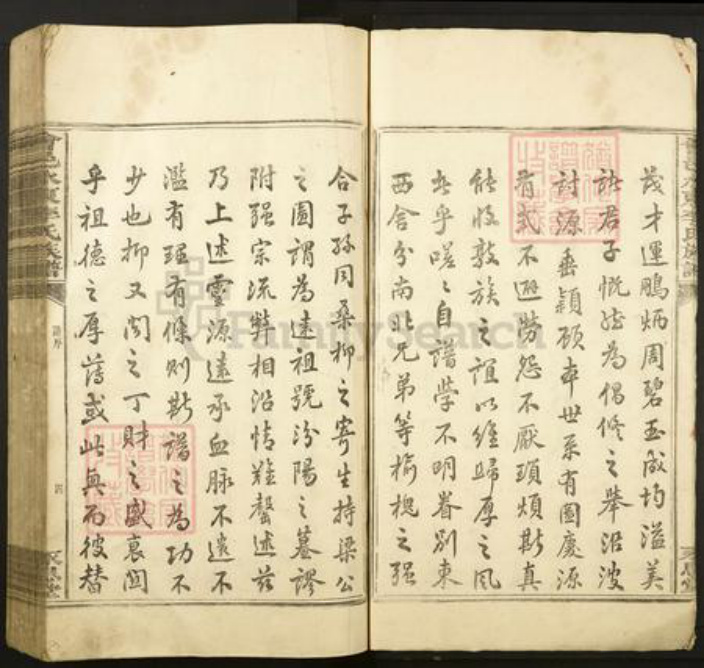 茂才運鵬炳周碧玉成均溢美
諸君子慨然為倡修之舉沿波
討源垂穎顧本世系有圖慶源
有式不避勞怨不厭瑣煩斯真
能收敦族之誼以維歸厚之風
者乎嗟嗟自譜學不明眷別東
西舍分南北兄弟等榆槐之强
合子孫同桑柳之寄生持梁公
之圖謂為遠祖號汾陽之墓謬
附强宗流弊相沿情難罄述茲
乃上述靈源遠承血脉不遺不
濫有理有條則斯譜之為功不
少也抑又聞之丁財之盛衰関
乎祖德之厚薄或此興而彼替
會邑水東李氏族譜
譜序
四
FamilySearch